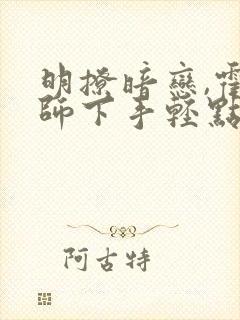 明撩暗戀,霍
師下手輕點
阿古特